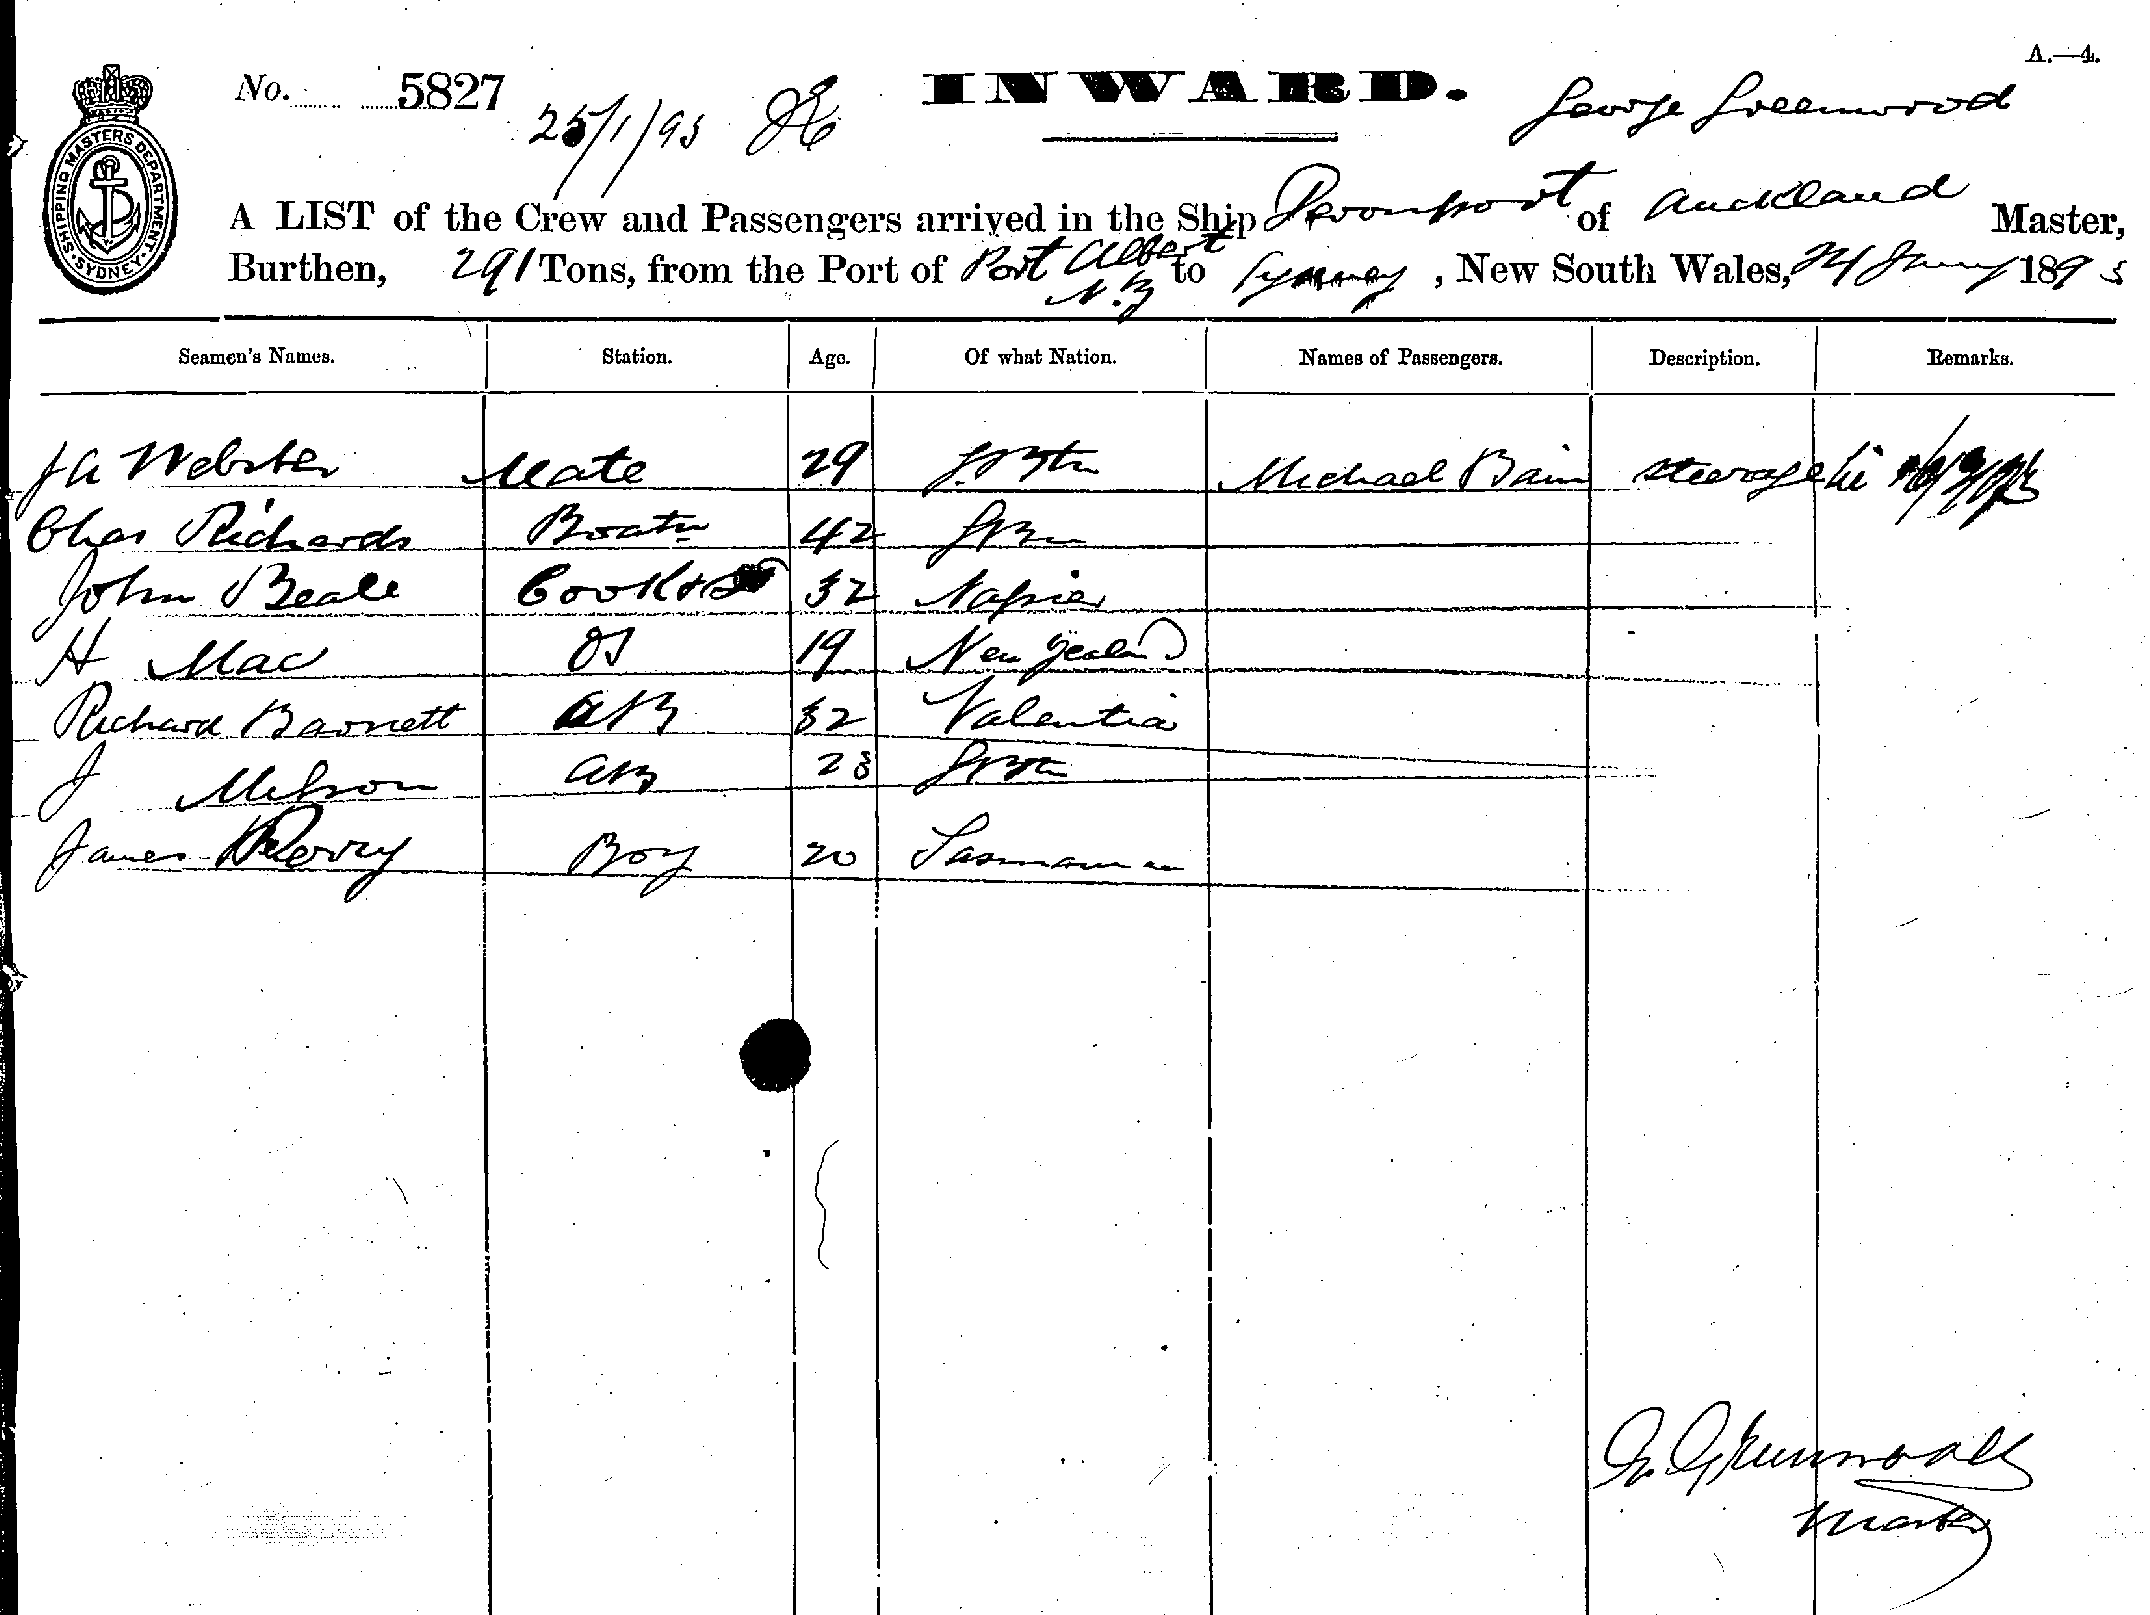 A.—4.
No. 5827 INWARD. George Greenwood
25/1/93
SHIPPING MASTERS DEPARTMENT SYDNEY
A LIST of the Crew and Passengers arrived in the Ship Devonport of Auckland Master,
Burthen, 291 Tons, from the Port of Port Albert N.Z to Sydney, New South Wales, 24 Jany 1893
Seamen's Names. Station. Age. Of what Nation. Names of Passengers. Description. Remarks.
J A Webster Mate 29 G. Btn Michael Bain steerage
Chas Richards Boatn 42
John Beale Cook & 32 Napier
H Mac OS 19 New Zealand
Richard Barnett AB 32 Valentia
J AB 28 G Btn
James Perry Boy 20
G. Greenwood
Master